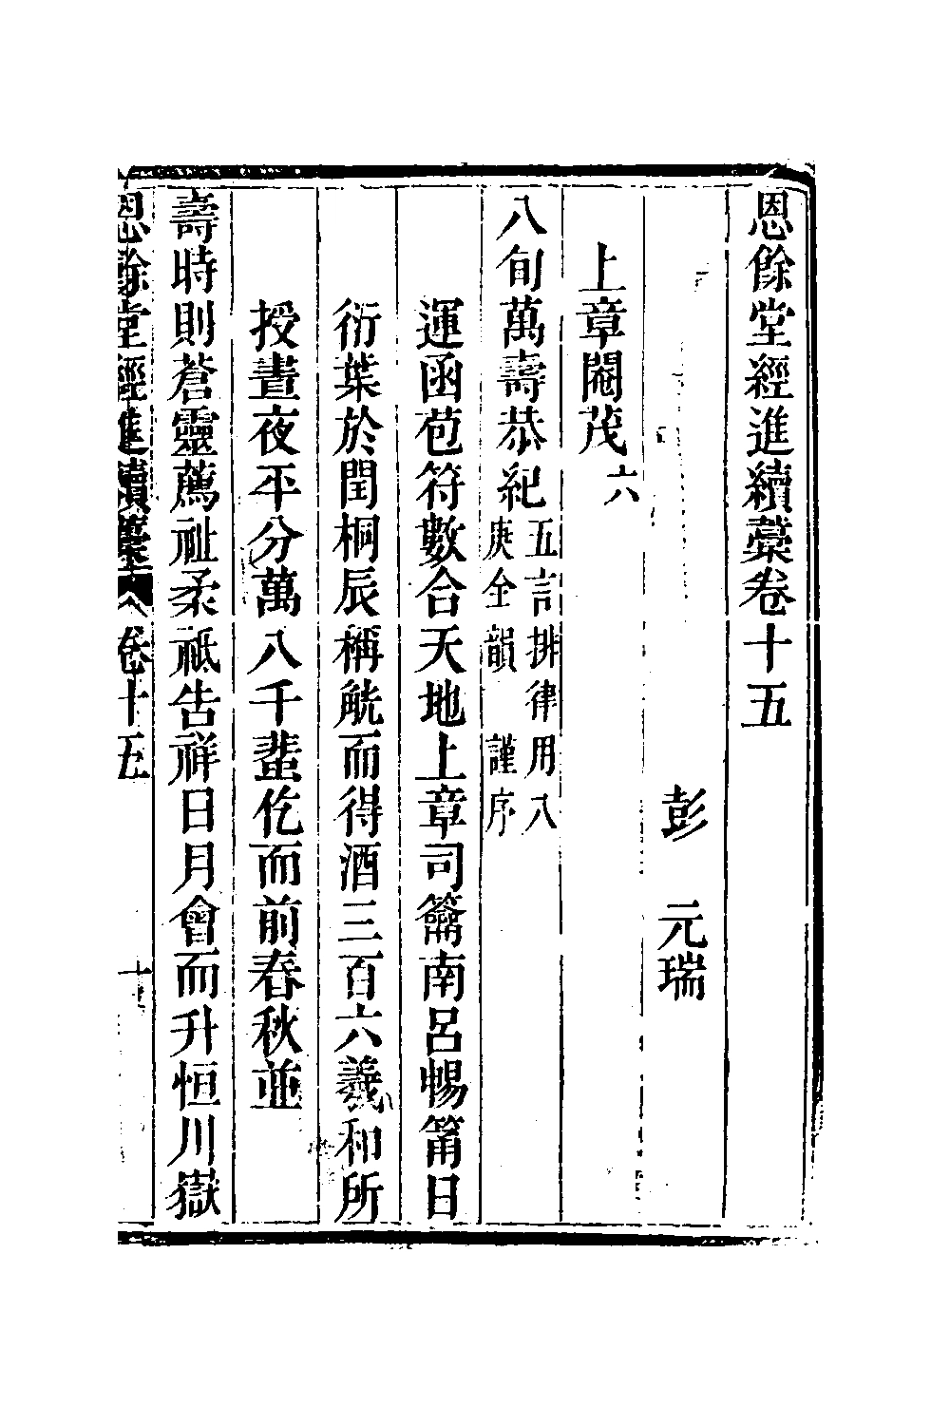 恩餘堂經進續藁卷十五
彭元瑞
上章閹茂六
八旬萬壽恭紀五言排律用八庚全韻謹序
運函苞符數合天地上章司籥南呂暢筩日
衍葉於閏桐辰稱觥而得酒三百六羲和所
授晝夜平分萬八千蜚仡而前春秋並
壽時則蒼靈薦祉柔祗告祥日月會而升恒川嶽
恩餘堂經進續藁卷十五